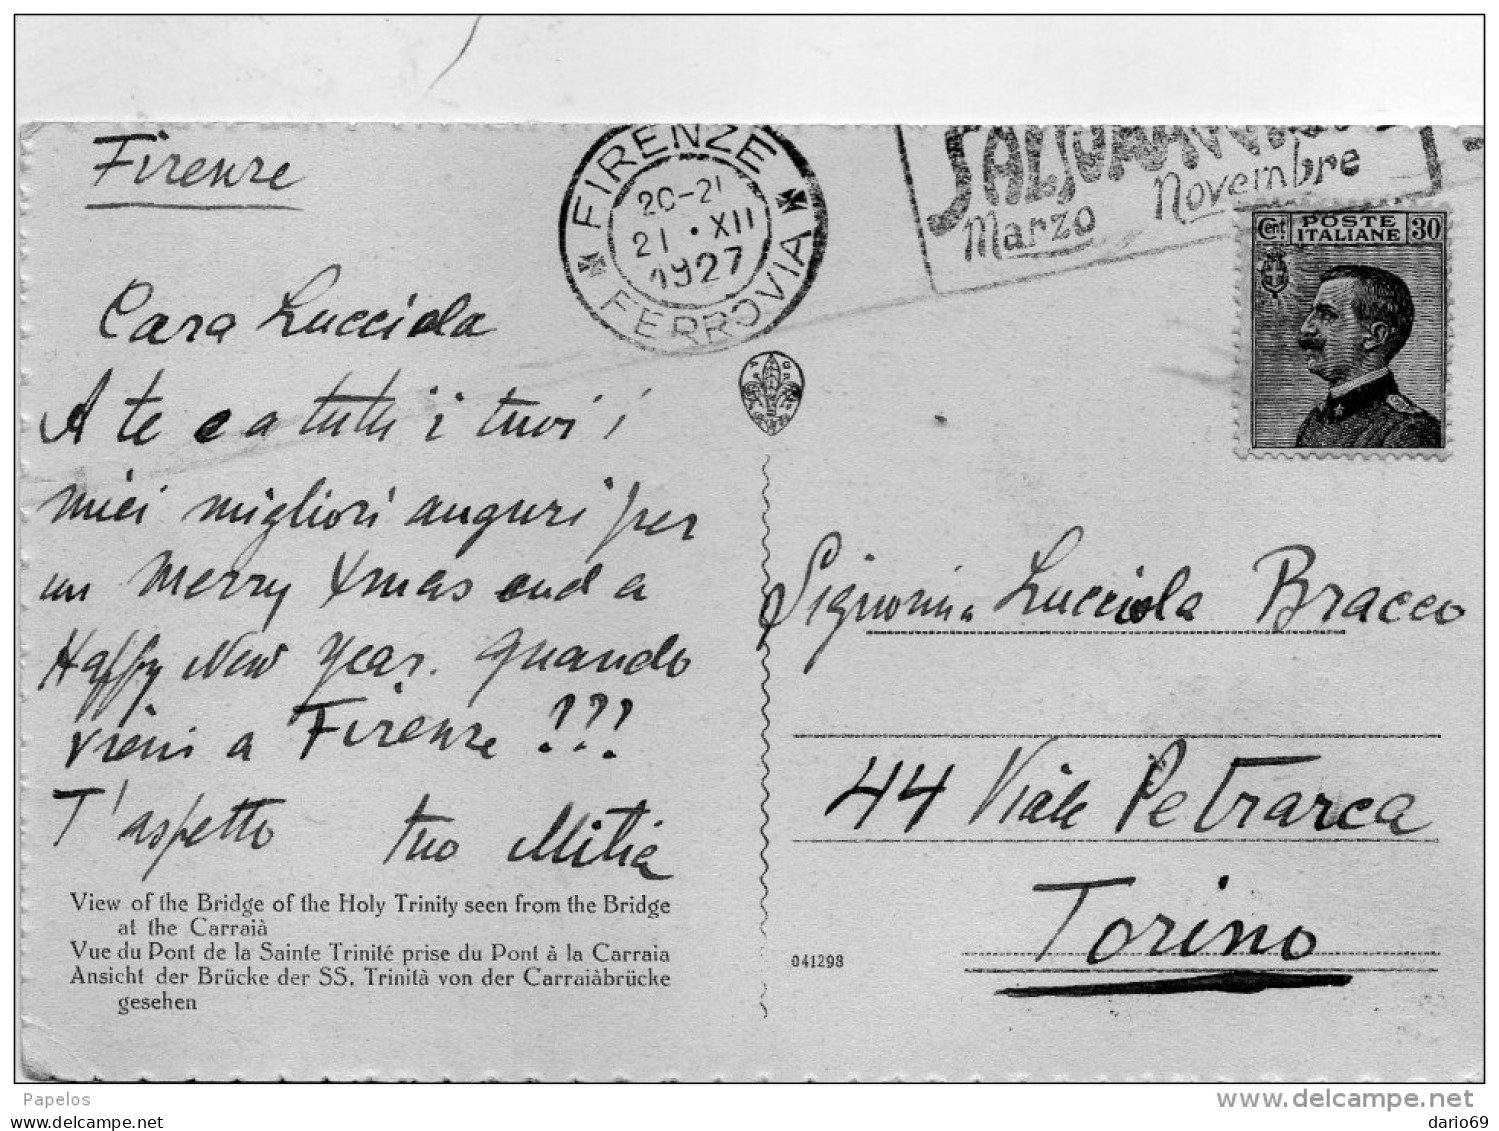 Firenze
FIRENZE
20-21
21 • XII
1927
FERROVIA
Marzo Novembre
Cent POSTE ITALIANE 30
Cara Lucciola
A te e a tutti i tuoi i
miei migliori auguri per
un Merry Xmas and a
Happy New Year. Quando
vieni a Firenze !???
T'aspetto tuo Mitia
View of the Bridge of the Holy Trinity seen from the Bridge
at the Carraià
Vue du Pont de la Sainte Trinité prise du Pont à la Carraia
Ansicht der Brücke der SS. Trinità von der Carraiàbrücke
gesehen
Signorina Lucciola Bracco
44 Viale Petrarca
Torino
041298
Papelos
www.delcampe.net
www.omnibus.com
dario69